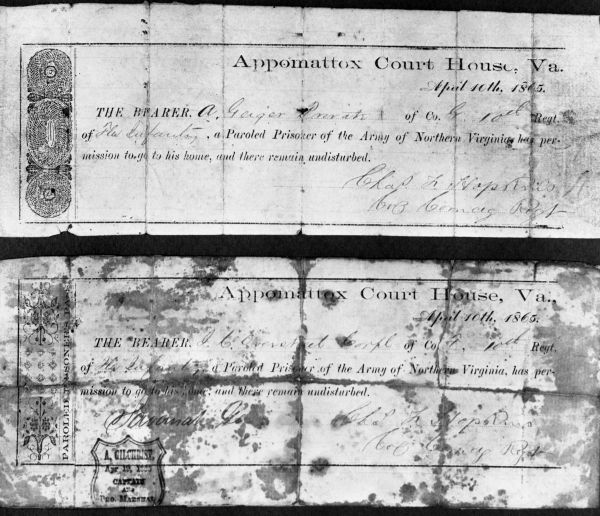 Appomattox Court House, Va.
April 10th, 1865.
THE BEARER, A. Geiger Private of Co. G. 10th Regt.
of Fla Infantry, a Paroled Prisoner of the Army of Northern Virginia, has per-
mission to go to his home, and there remain undisturbed.
Chas. F. Hopkins
Col Comdg Regt
Appomattox Court House, Va.,
April 10th, 1865.
THE BEARER, J. C. Corpl of Co. 10th Regt.
of Fla Infantry, a Paroled Prisoner of the Army of Northern Virginia, has per-
mission to go to his home, and there remain undisturbed.
PAROLED PRISONER'S PASS.
Savannah Ga
Chas. F. Hopkins
Col Comdg Regt
A. GILCHRIST,
CAPTAIN
AND
PRO. MARSHAL